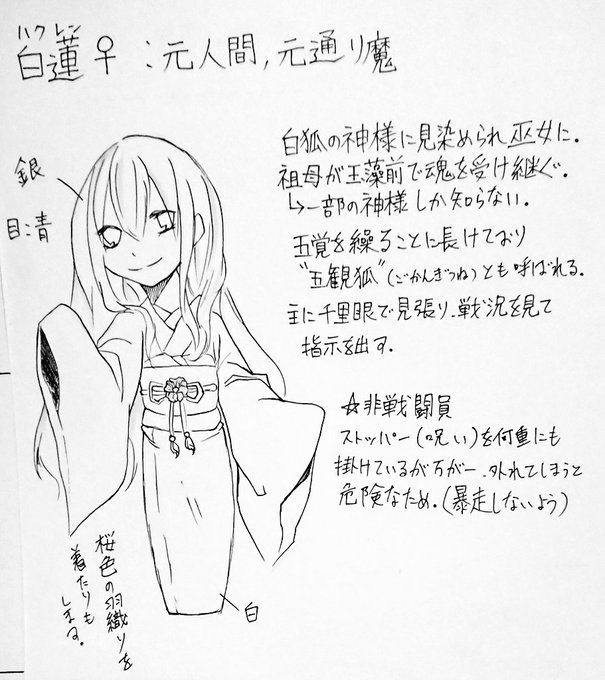 ハクレン
白蓮♀:元人間,元通り魔
白狐の神様に見染められ巫女に.
祖母が玉藻前で魂を受け継ぐ.
↳一部の神様しか知らない.
五覚を繰ることに長けており
"五観狐"(ごかんぎつね)とも呼ばれる.
主に千里眼で見張り、戦況を見て
指示を出す.
☆非戦闘員
ストッパー(呪い)を何重にも
掛けているが万が一、外れてしまうと
危険なため.(暴走しないよう)
銀
目:青
桜色の羽織りを
着たりも
します。
白